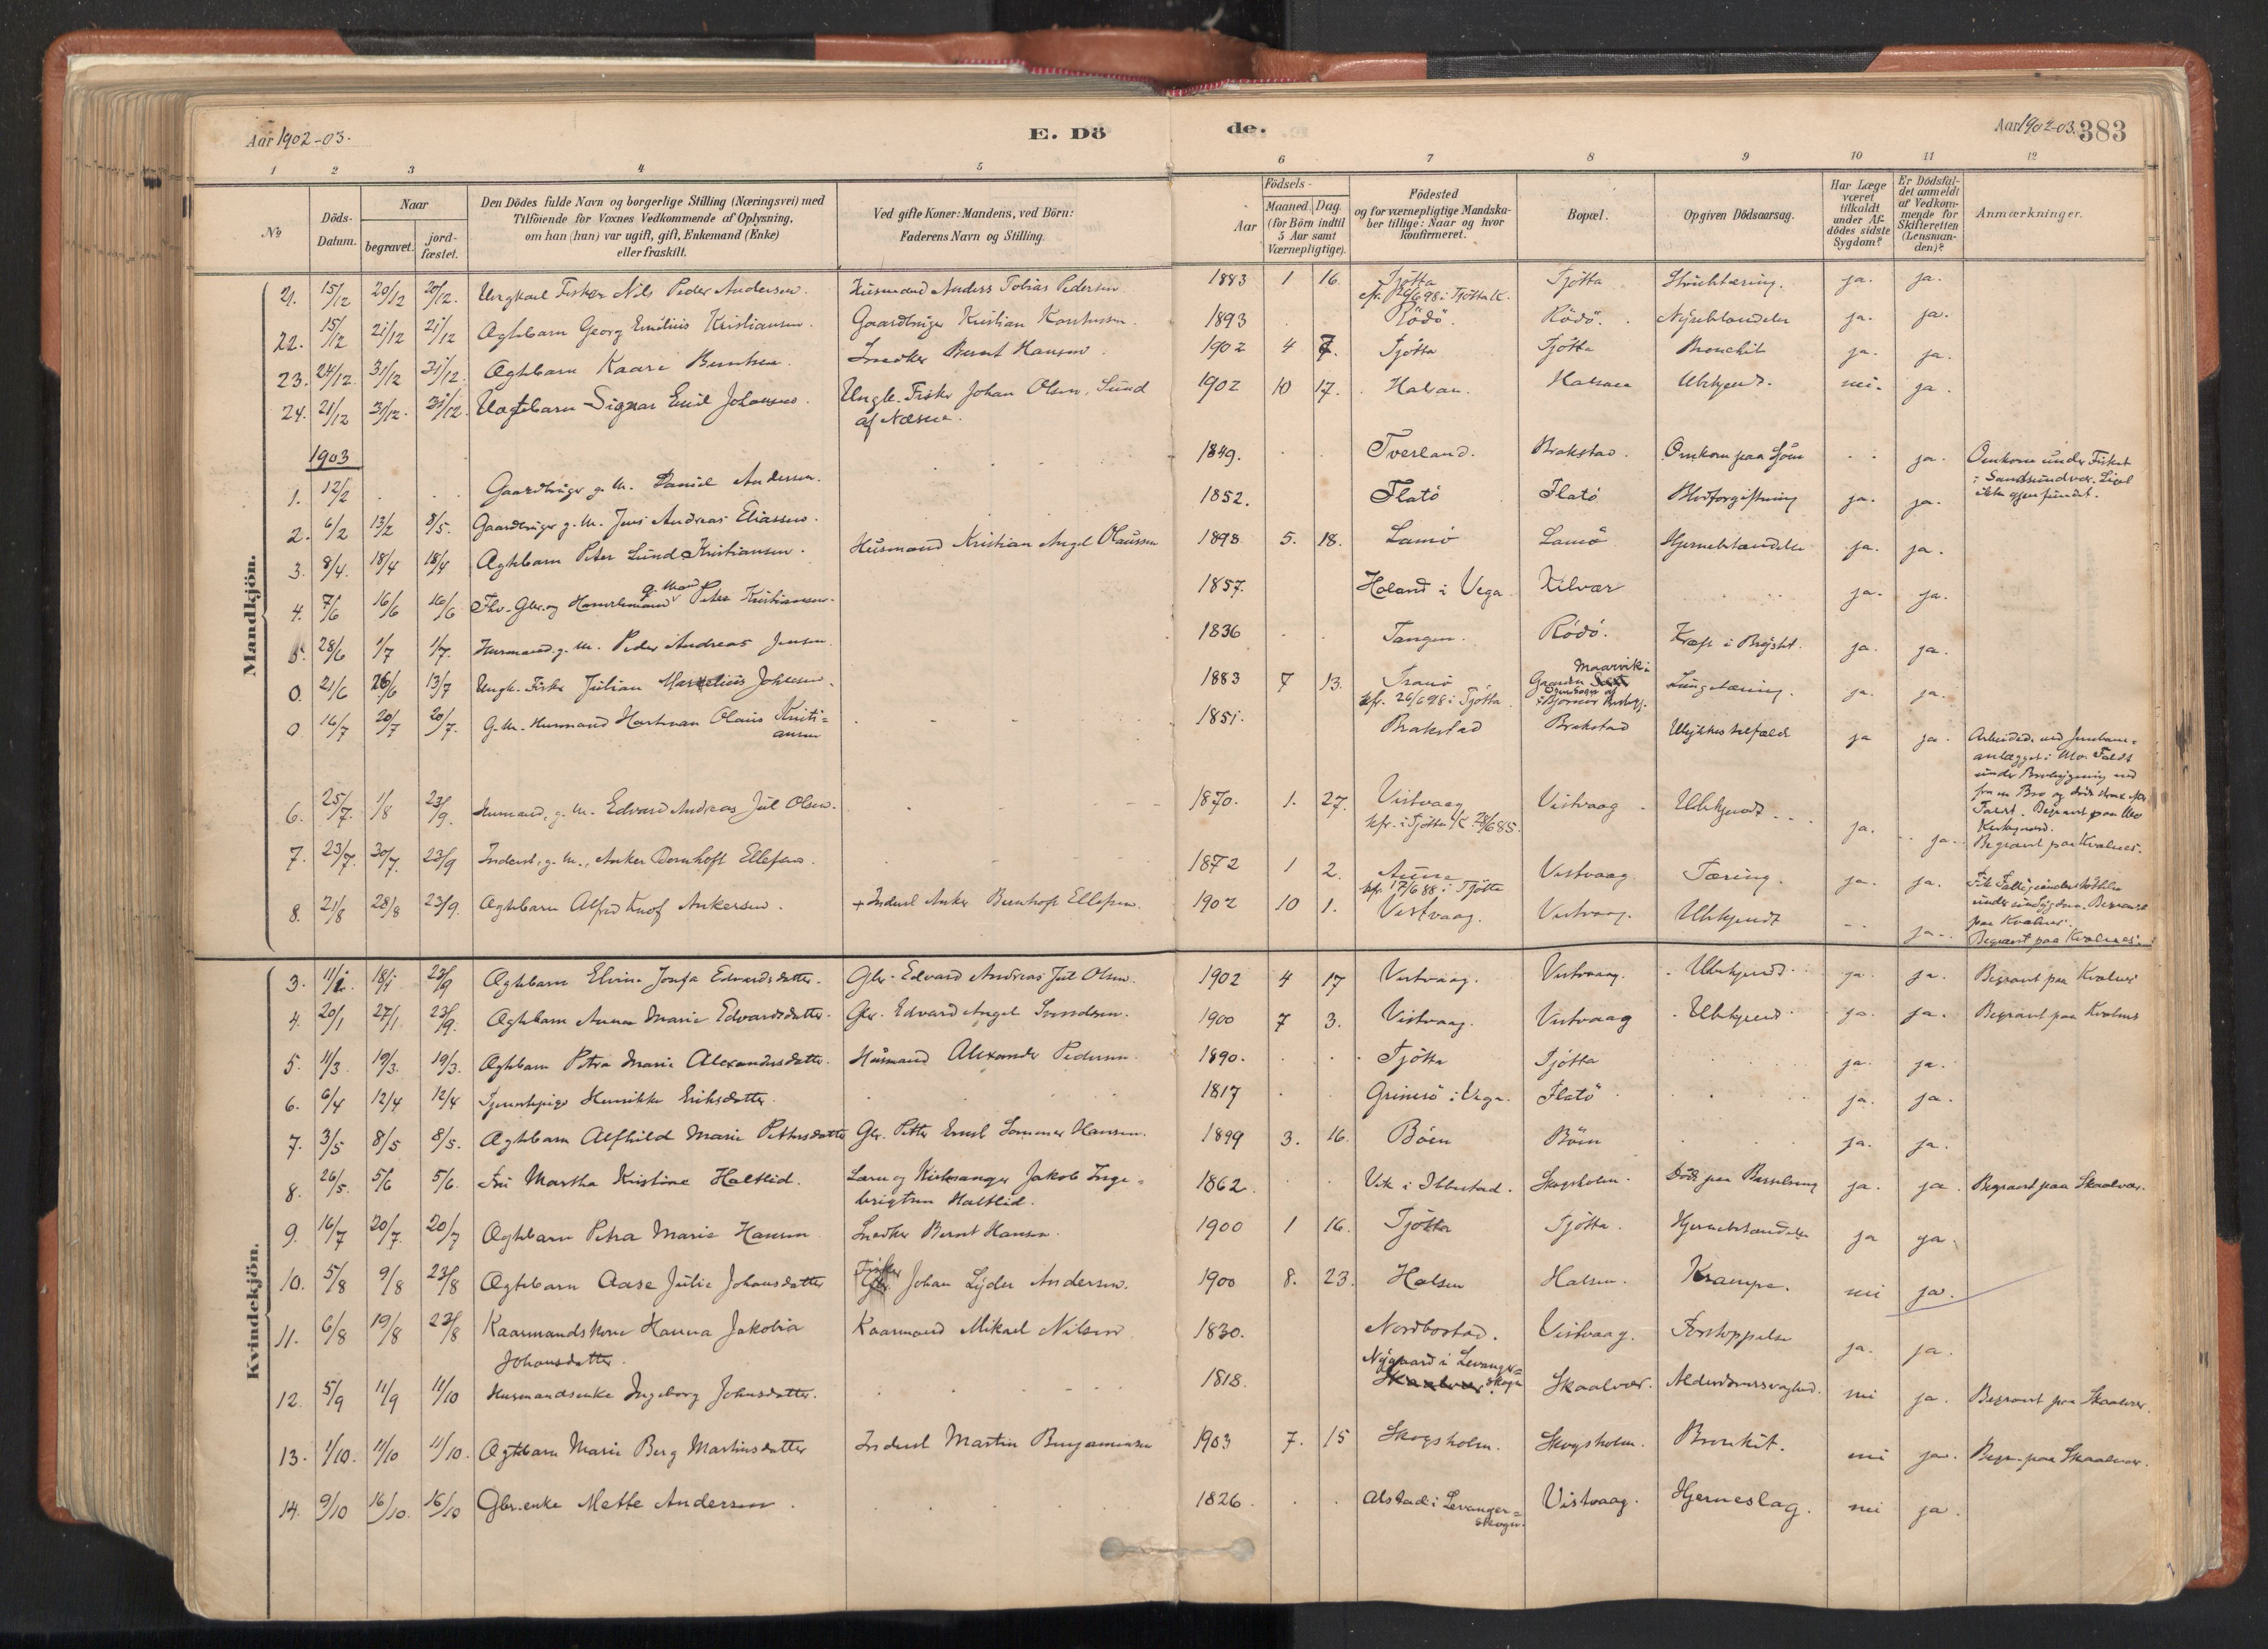 Aar 1902-03.
E. Dö
de.
Aar 1902-03. 383
1 2 3 4 5 6 7 8 9 10 11 12
№
Döds-
Datum.
Naar
begravet.
jord-
fæstet.
Den Dödes fulde Navn og borgerlige Stilling (Næringsvei) med
Tilföiende for Voxnes Vedkommende af Oplysning,
om han (hun) var ugift, gift, Enkemand (Enke)
eller fraskilt.
Ved gifte Koner: Mandens, ved Börn:
Faderens Navn og Stilling.
Födsels-
Aar
Maaned. Dag.
(for Börn indtil
5 Aar samt
Værnepligtige).
Födested
og for værnepligtige Mandska-
ber tillige: Naar og hvor
konfirmeret.
Bopæl.
Opgiven Dödsaarsag.
Har Læge
været
tilkaldt
under Af-
dödes sidste
Sygdom?
Er Dödsfal-
det anmeldt
af Vedkom-
mende for
Skifteretten
(Lensman-
den)?
Anmærkninger.
Mandkjön.
21. 15/12 20/12 20/12. Ungkarl Fisker Nils Peder Andersen. Husmand Anders Tobias Pedersen 1883 1 16. Tjötta Tjötta ja. ja.
cfr. 26/6 98 i Tjötta K.
22. 15/12 21/12 21/12 Ægtebarn Georg Emilius Kristiansen. Gaardbruger Kristian 1893 Rödö. Rödö. ja. ja.
23. 24/12. 31/12 31/12. Ægtebarn Kaare Berntsen. Snedker Bernt Hansen. 1902 4 7. Tjötta Tjötta Bronchit ja. ja.
24. 21/12 31/12. 31/12. Uægtebarn Signar Emil Johansen. Ungk. Fisker Johan Olsen, Sund 1902 10 17. Halsan. Halsan Ubekjendt. nei. ja.
af Næsna.
1903
1. 12/2 Gaardbruger g. M. Daniel Andersen. 1849. Tverland. Brakstad. Omkom paa Sjöen ja. Omkom under Fisket
i Sandsundvær. Liget
ikke gjenfundet.
2. 6/2 13/2 8/5. Gaardbruger g. M. Jens Andreas Eliassen. 1852. Flatö Flatö Blodforgiftning ja. ja.
3. 8/4. 18/4 18/4 Ægtebarn Peter Lund Kristiansen. Husmand Kristian Angel Olaussen 1898 5. 18. Lamö Lamö Hjernebetændelse ja. ja.
4. 7/6 16/6 16/6 Fhv. Gbr. og Handelsmand g. Mand Peter Kristiansen. 1857. Holand i Vega Kilvær ja. ja.
5. 28/6 1/7 1/7. Husmand g. M. Peder Andreas Jensen 1836 Tangen. Rödö. Kræft i Brystet. ja. ja.
0. 21/6 26/6 13/7 Ungk. Fisker Julian Johnsen. 1883 7 13. Tranö Maarvik i
Gaarden Lungetæring. ja. ja.
kfr. 26/6 98 i Tjötta.
0 16/7 20/7 20/7. G. M. Husmand Hartman Olaus Kristi=
ansen 1851. Brakstad Brakstad Ulykkestilfælde ja ja. Arbeidede ved Jernbane=
anlægget i Mo. Faldt
under Brobygning ned
fra en Bro og döde strax efter
Faldet. Begravet paa Mo
Kirkegaard.
6. 25/7. 1/8 23/9. Husmand, g. M. Edvard Andreas Jul Olsen. 1870. 1. 27. Vistvaag Vistvaag Ubekjendt ja. ja. Begravet paa Kvalnes.
kfr. i Tjötta K. 28/6 85.
7. 23/7. 30/7. 23/9 Inderst, g. M., Anker Bernhoft Ellefsen. 1872 1 2. Aune Vistvaag. Tæring. ja. ja.
kfr. 17/6 88 i Tjötta
8. 21/8 28/8 23/9. Ægtebarn Alfred Knof Ankersen. + Inderst Anker Bernhoft Ellefsen. 1902 10 1. Vistvaag. Vistvaag. Ubekjendt ja.
paa Kvalnes.
Begravet paa Kvalnes.
Kvindekjön.
3. 11/1. 18/1 23/9 Ægtebarn Elvine Josefa Edvardsdatter. Gbr. Edvard Andreas Jul Olsen. 1902 4 17 Vistvaag. Vistvaag. Ubekjendt. ja. ja. Begravet paa Kvalnes
4. 20/1 27/1. 23/9. Ægtebarn Anna Marie Edvardsdatter. Gbr. Edvard Angel Svendsen. 1900 7 3. Vistvaag. Vistvaag Ubekjendt ja. ja. Begravet paa Kvalnes
5. 11/3 19/3. 19/3. Ægtebarn Petra Marie Alexandersdatter. Husmand Alexander Pedersen. 1890. Tjötta Tjötta ja. ja.
6. 6/4 12/4 12/4 Tjenestepige Henrikke Eriksdatter. 1817 Grimsö i Vega. Flatö ja. ja.
7. 3/5 8/5 8/5. Ægtebarn Alfhild Marie Pettersdatter Gbr. Petter Ernst Sommer Hansen. 1899 3. 16. Böen Böen ja. ja.
8. 26/5. 5/6 5/6. Fru Martha Kristine Haltlid. Lærer og Kirkesanger Jakob Inge= 1862. Vik i Ibbestad. Skogsholm. Död paa Barselseng ja. ja Begravet paa Skaalvær.
brigtsen Haltlid.
9. 16/7 20/7. 20/7 Ægtebarn Petra Marie Hansen Snedker Bernt Hansen. 1900 1 16. Tjötta Tjötta. Hjernebetændelse ja ja.
10. 5/8 9/8 23/8 Ægtebarn Aase Julie Johansdatter Fisker Johan Lyder Andersen. 1900 8. 23. Halsen Halsen. Krampe. nei ja.
11. 6/8 19/8 23/8 Kaarmandskone Hanna Jakobia Kaarmand Mikael Nilsen 1830. Nordbostad. Vistvaag. Forstoppelse ja. ja.
Johansdatter.
12. 5/9 11/9 11/10 Husmandsenke Ingeborg Johnsdatter. 1818. Nygaard i Levanger=
skogn Skaalvær. Alderdomssvaghed. nei ja. Begravet paa Skaalvær.
13. 1/10. 11/10 11/10. Ægtebarn Marie Berg Martinsdatter Inderst Martin Benjaminsen 1903 7. 15 Skogsholm. Skogsholm. Bronkit. nei ja. Begr. paa Skaalvær.
14. 9/10 16/10. 16/10 Gbr.enke Mette Andersen. 1826. Alstad i Levanger= Vistvaag. Hjerneslag. nei ja.
skogn.